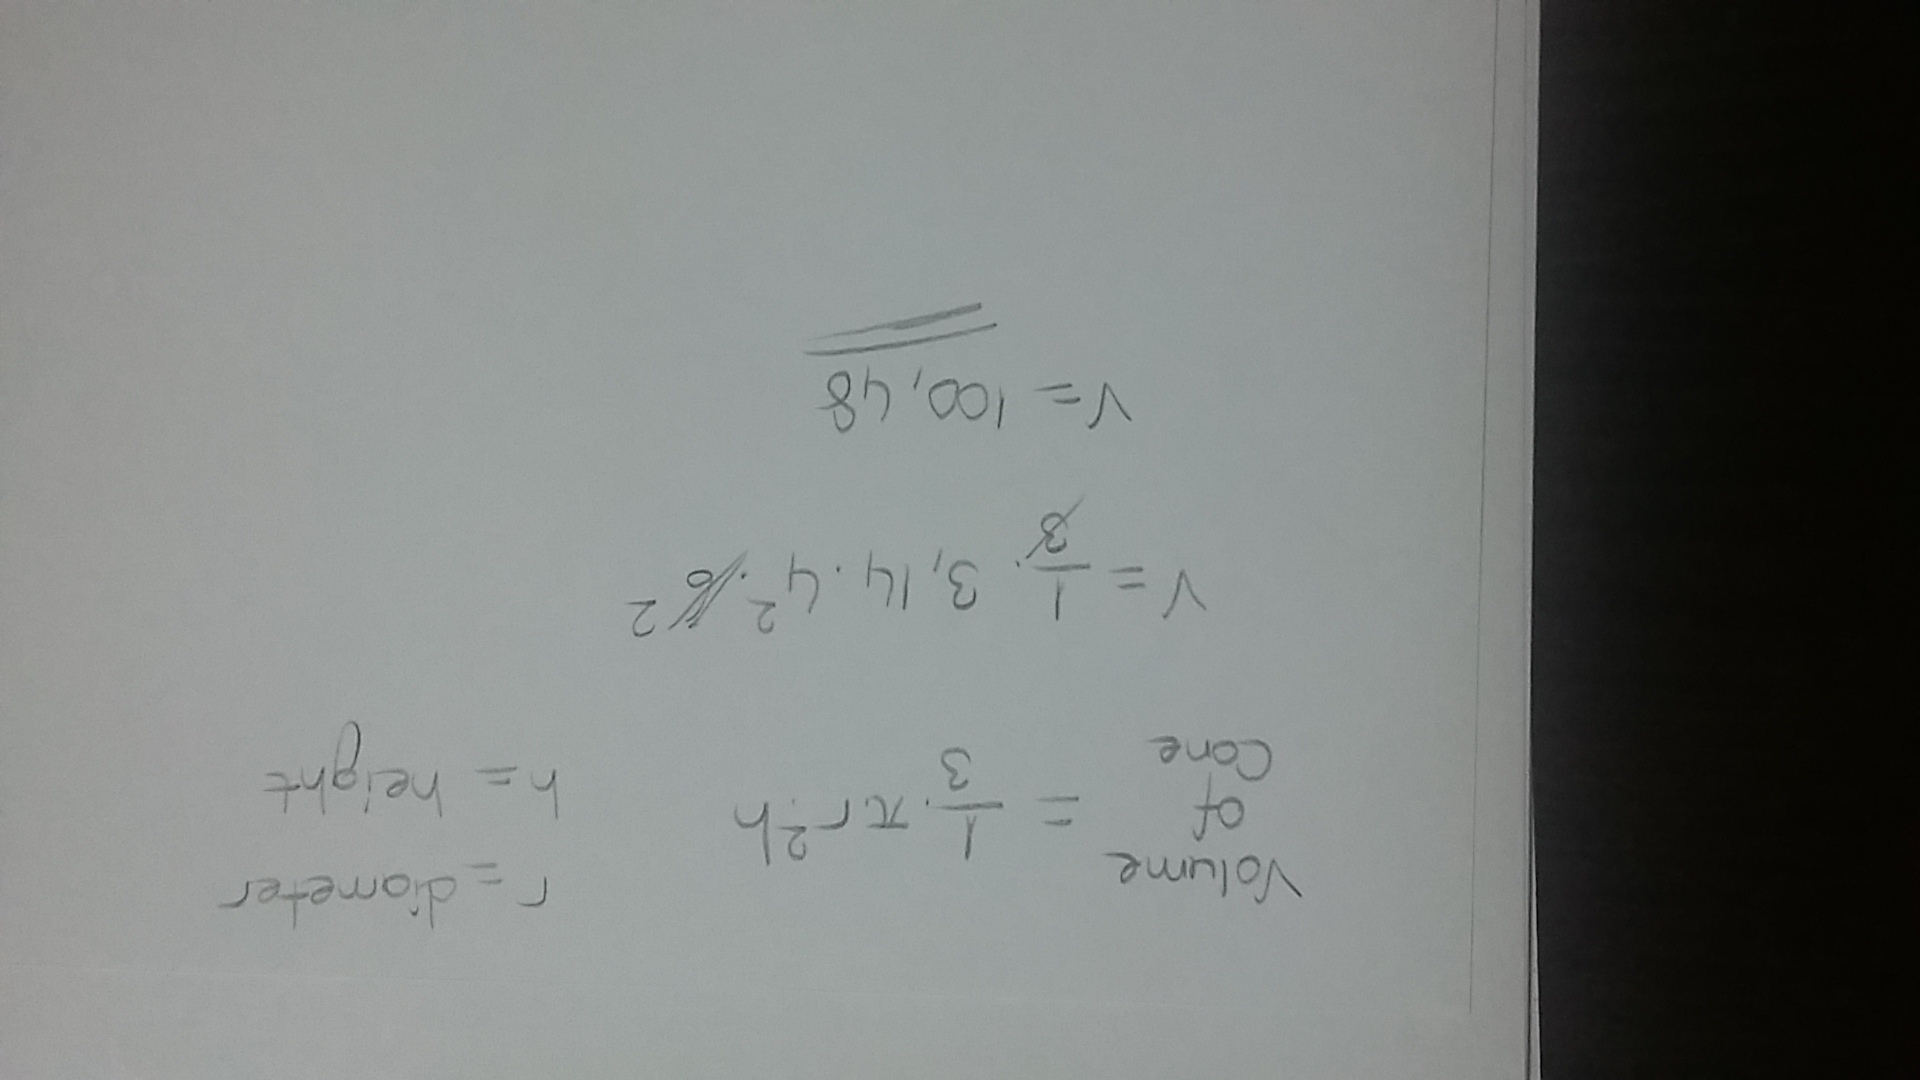 Volume of Cone = 1/3 · π r² · h
r = diameter
h = height
V = 1/3 · 3,14 · 4² · 6 2
V = 100,48